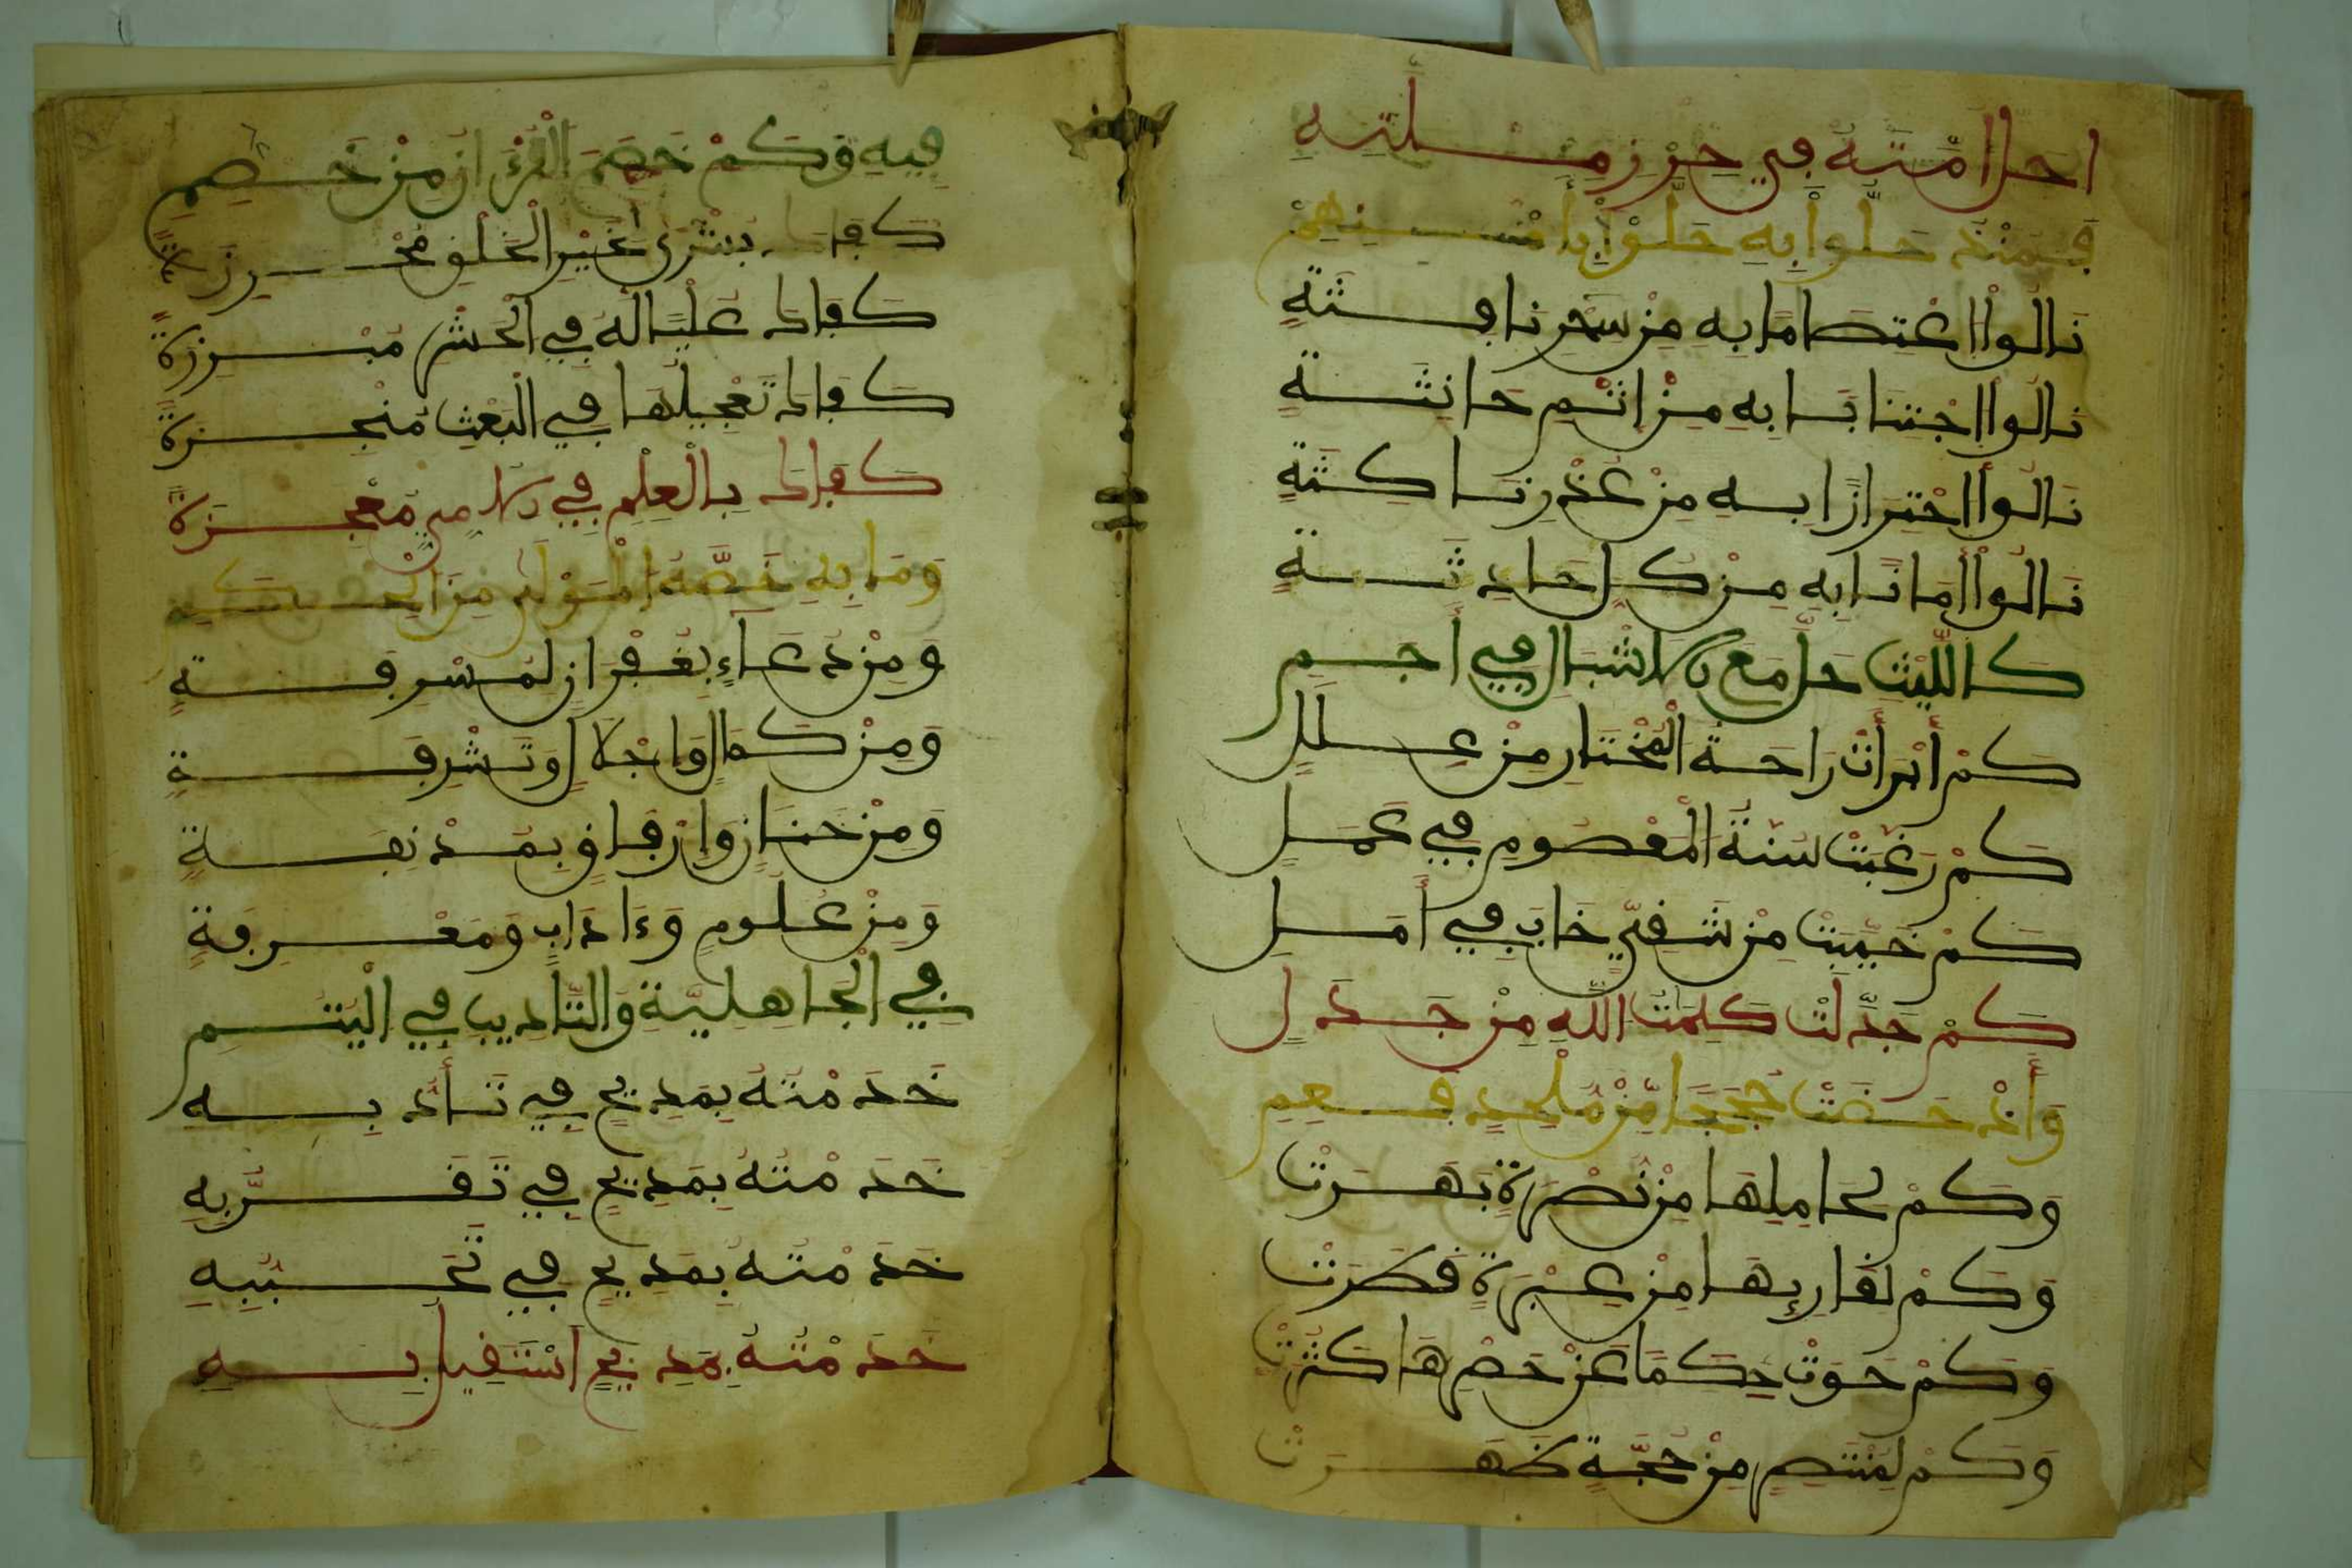 احل امته في حرز ملته
فمنذ حلوا به حلوا بأمنهم
نالوا اعتصاما به من سحر نافثة
نالوا اجتنابا به من اثم حانثة
نالوا احترازا به من غدر ناكثة
نالوا أمانا به من كل حادثة
كالليث حل مع الاشبال في أجم
كم أبرأت راحة المختار من علل
كم رغبت سنة المعصوم في عمل
كم خيبت من شقي خاب في أمل
كم جدلت كلمت الله من جدل
وأدحضت حججا من ملحد فعم
وكم لحاملها من نصرة بهرت
وكم لقاريها من عبرة قطرت
وكم حوت حكما عن حصرها كثرت
وكم لمنتصر من حجة ظهرت
فيه وكم خصم القرءان من خصم
كفاك بشرى بخير الخلق محرزة
كفاك عليا له في الحشر مبرزة
كفاك تعجيلها في البعث منجزة
كفاك بالعلم في الامي معجزة
وما به خصه المولى من الحكم
ومن دعاء بغفران لمسرفة
ومن كمال واجلال وتشرفة
ومن حنان وارفاق
ومن علوم وءاداب ومعرفة
في الجاهلية والتاديب في اليتم
خدمته بمديح في تأدبه
خدمته بمديح في تقربه
خدمته بمديح في تحببه
خدمته بمديح استقيل به